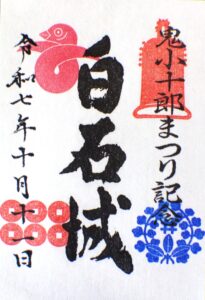 鬼小十郎まつり記念
白石城
令和七年十月十一日